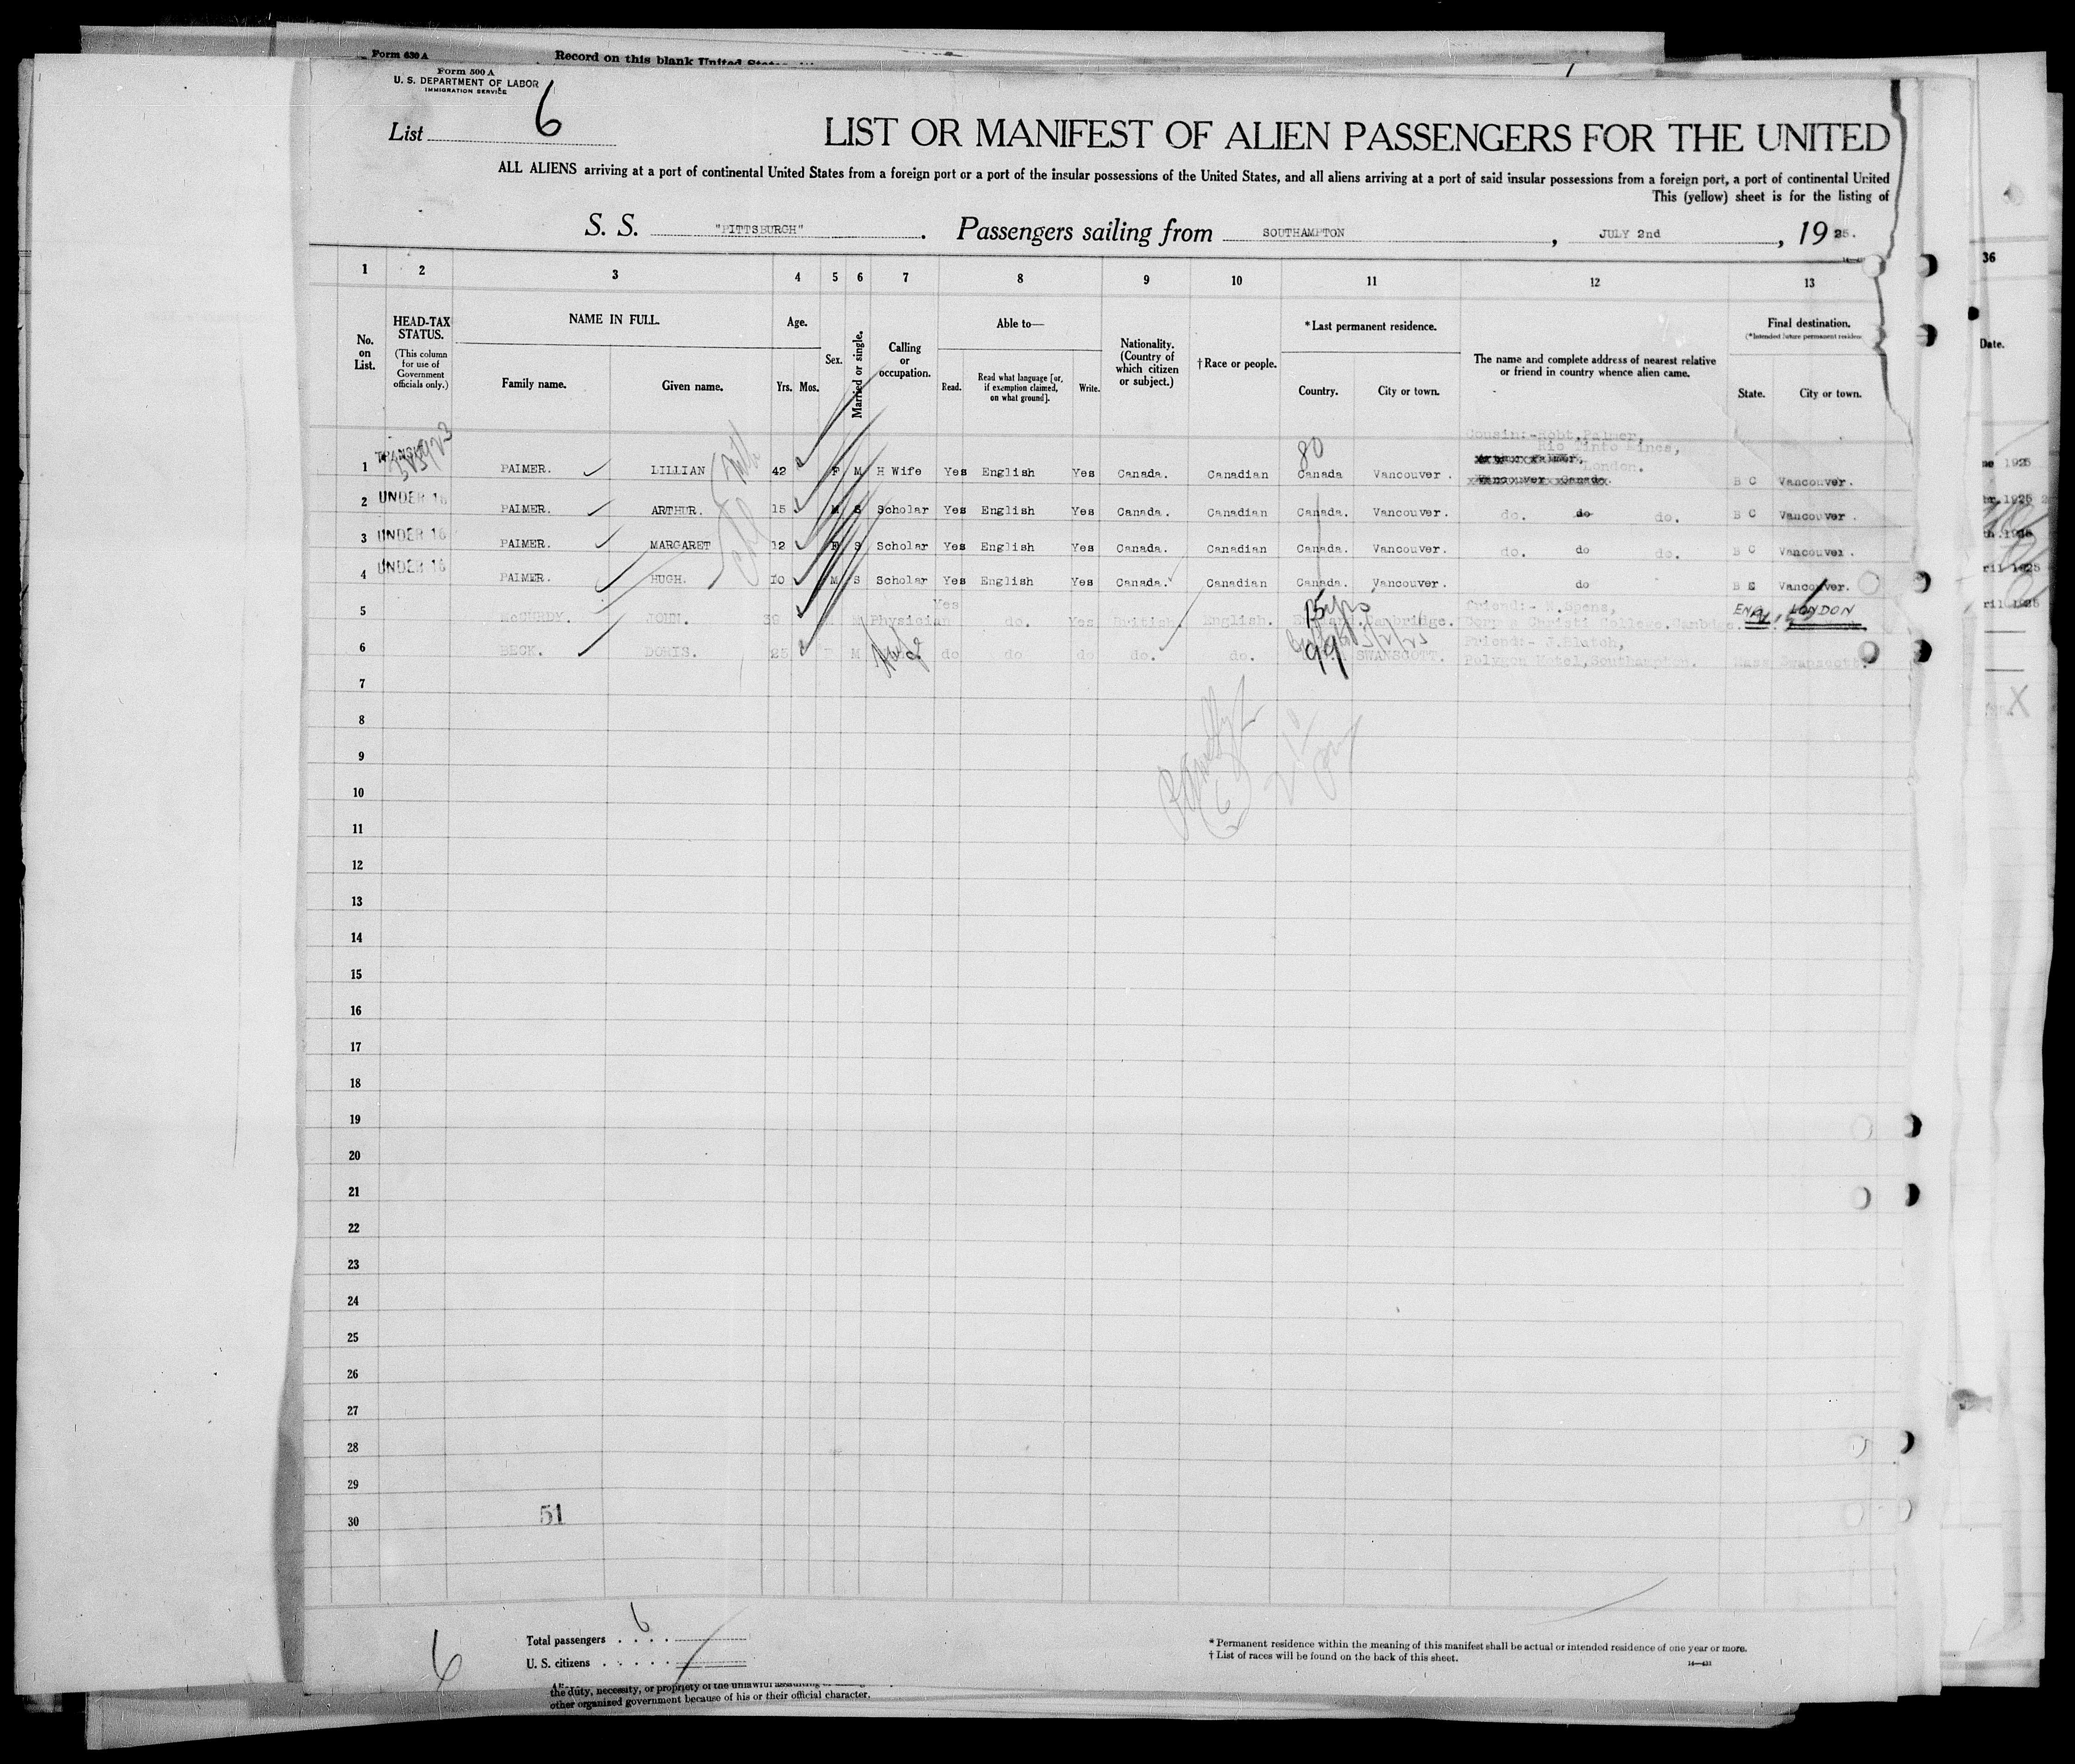 Form 630 A
Record on this blank United States
Form 500 A
U. S. DEPARTMENT OF LABOR
IMMIGRATION SERVICE
List 6
LIST OR MANIFEST OF ALIEN PASSENGERS FOR THE UNITED
ALL ALIENS arriving at a port of continental United States from a foreign port or a port of the insular possessions of the United States, and all aliens arriving at a port of said insular possessions from a foreign port, a port of continental United
This (yellow) sheet is for the listing of
S. S. "PITTSBURGH". Passengers sailing from SOUTHAMPTON, JULY 2nd, 1925.
1 2 3 4 5 6 7 8 9 10 11 12 13
36
No. on List.
HEAD-TAX STATUS.
(This column for use of Government officials only.)
NAME IN FULL.
Family name. Given name.
Age.
Yrs. Mos.
Sex.
Married or single.
Calling or occupation.
Able to—
Read. Read what language [or, if exemption claimed, on what ground]. Write.
Nationality. (Country of which citizen or subject.)
†Race or people.
*Last permanent residence.
Country. City or town.
The name and complete address of nearest relative or friend in country whence alien came.
Final destination.
(*Intended future permanent residence
State. City or town.
Date.
80
Cousin:-Robt.Palmer,
Rio Tinto Mines,
London.
1 TRANSIT PALMER. LILLIAN 42 F M H Wife Yes English Yes Canada. Canadian Canada Vancouver. Vancouver Canada. B C Vancouver.
2 UNDER 16 PALMER. ARTHUR. 15 M S Scholar Yes English Yes Canada. Canadian Canada. Vancouver. do. do do. B C Vancouver.
3 UNDER 16 PALMER. MARGARET 12 F S Scholar Yes English Yes Canada. Canadian Canada. Vancouver. do. do do. B C Vancouver.
4 UNDER 16 PALMER. HUGH. 10 M S Scholar Yes English Yes Canada. Canadian Canada. Vancouver. do B C Vancouver.
Friend:- W.Spens,
5 McCURDY. JOHN. 39 M M Physician Yes do. Yes British. English. England Cambridge. Corpus Christi College.Cambdge. ENG. LONDON
Friend:- J.Blatch,
6 BECK. DORIS. 25 F M do do do do. do. 99 SWANSCOTT. Polygon Hotel,Southampton. Mass Swanscott.
7
8
9
10
11
12
13
14
15
16
17
18
19
20
21
22
23
24
25
26
27
28
29
30
51
Total passengers . . . . 6
U. S. citizens . . . . .
6
* Permanent residence within the meaning of this manifest shall be actual or intended residence of one year or more.
† List of races will be found on the back of this sheet.
the duty, necessity, or propriety of the unlawful assaulting
other organized government because of his or their official character.